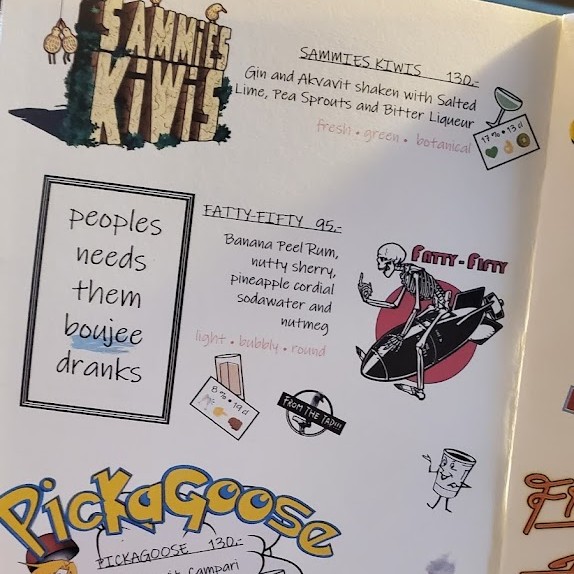 SAMMIES
KIWIS
SAMMIES KIWIS 130.-
Gin and Akvavit shaken with Salted
Lime, Pea Sprouts and Bitter Liqueur
fresh • green • botanical
17% • 13 cl
peoples
needs
them
boujee
dranks
FATTY-FIFTY 95.-
Banana Peel Rum,
nutty sherry,
pineapple cordial
sodawater and
nutmeg
light • bubbly • round
8% • 19 cl
FATTY-FIFTY
FROM THE TAP!!!
PICKAGOOSE
PICKAGOOSE 130.-
Campari